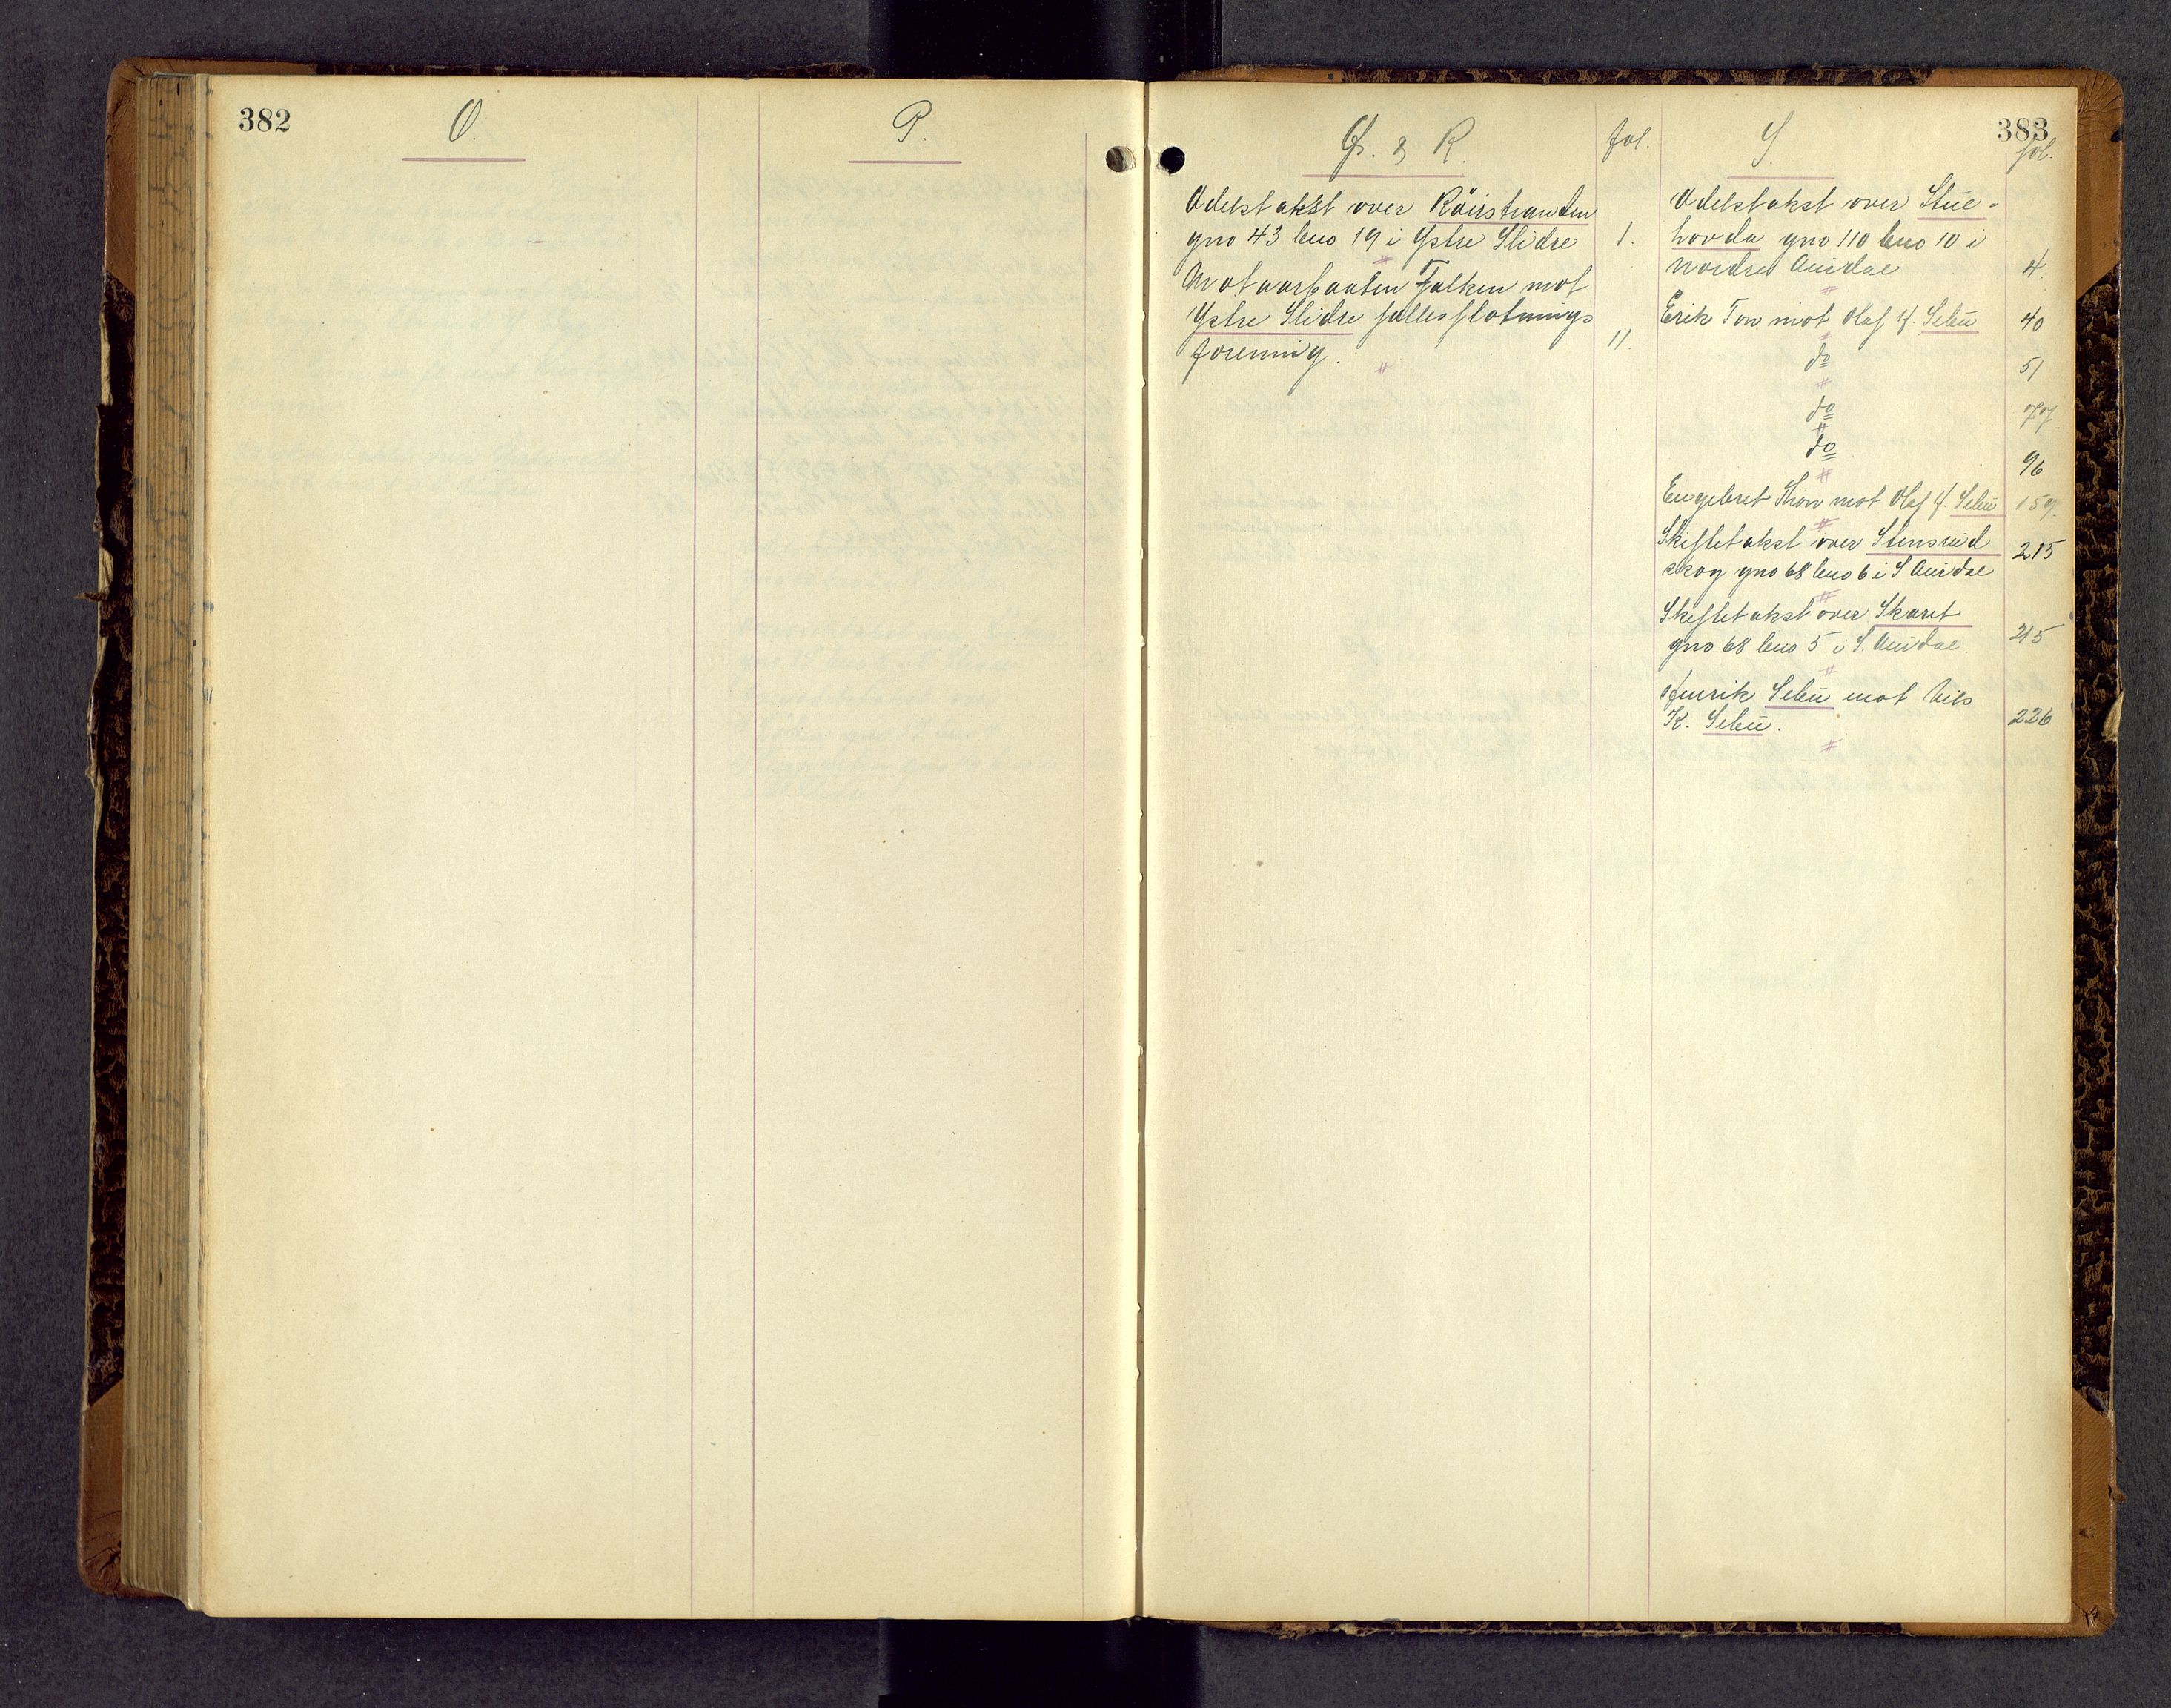 382
O.
P.
383
Q. & R.
fol.
Odelstakst over Röirstranden
gno 43 bno 19 i Østre Slidre
1.
Motorbaaten Falken mot
Østre Slidre fællesfløtnings
forening.
11.
S.
fol.
Odelstakst over Stue-
hovda gno 110 bno 10 i
Nordre Aurdal
4.
Erik Ton mot Olaf H. Sebu
40
do
51
do
77.
do
96
Engebret Thon mot Olaf H. Sebu
159.
Skiftetakst over Stensrud
skog gno 68 bno 6 i S Aurdal
215
Skiftetakst over Skaret
gno 68 bno 5 i S. Aurdal.
215
Henrik Sebu mot Nils
K. Sebu.
226